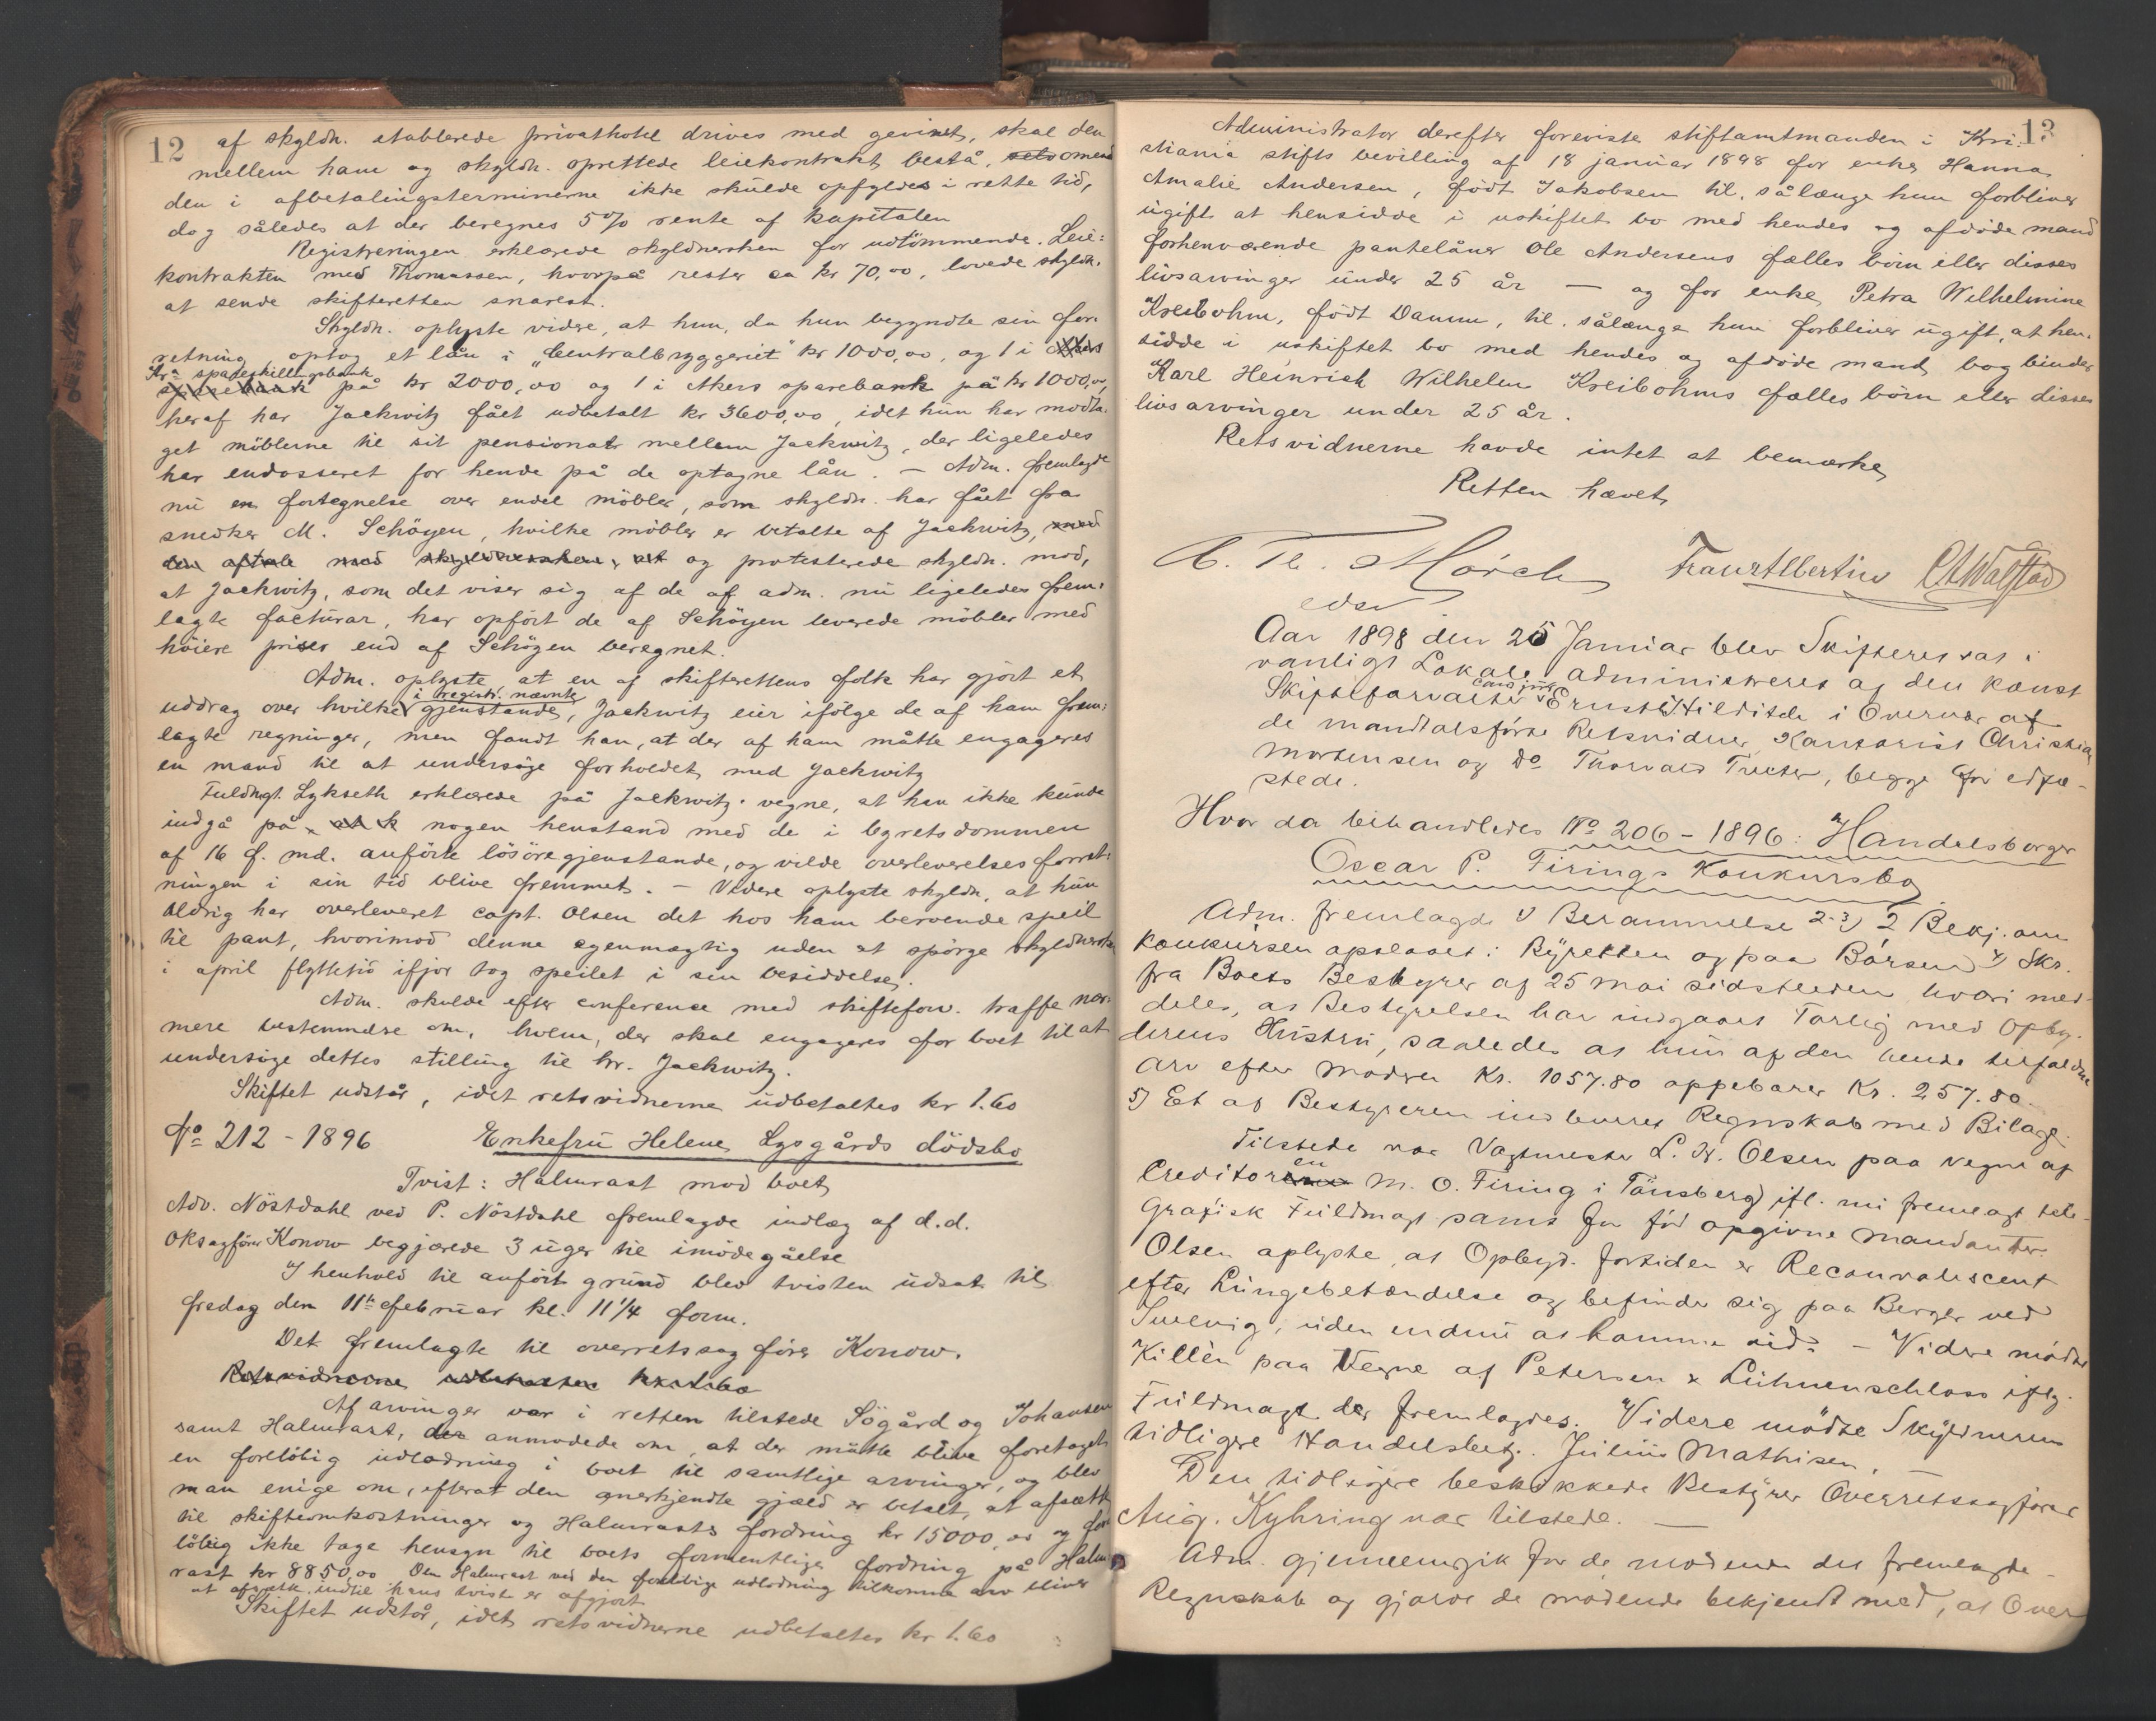 12
af skyldn. etablerede privathotel drives med gevinst, skal den
mellem ham og skyldn. oprettede leiekontrakt bestå, selv omend
den i afbetalingsterminerne ikke skulde opfyldes i rette tid,
dog således at der beregnes 5% rente af kapitalen
Registreringen erklærede skyldnersken for udtömmende. Leie-
kontrakten med Thomassen, hvorpå rester ca kr 70,00, lovede skyldn.
at sende skifteretten snarest.
Skyldn. oplyste videre, at hun, da hun begyndte sin for-
retning, optog et lån i "Centralbryggeriet" kr 1000,00, og 1 i Akers
Kra spareskillingsbank
sparebank på kr 2000,00 og 1 i Akers sparebank på kr 1000,00,
heraf har Jackwitz fået udbetalt kr 3600,00, idet hun har modta-
get möblerne til sit pensionat mellem Jackwitz, der ligeledes
har endosseret for hende på de optagne lån. — Adm. fremlagde
nu en fortegnelse over endel möbler, som skyldn. har fået fra
snedker M. Schöyen, hvilke möbler er betalte af Jackwitz, med
den aftale med skyldnersken, at og protesterede skyldn. mod,
at Jackwitz, som det viser sig af de af adm. nu ligeledes frem-
lagte facturar, har opfört de af Schöyen leverede möbler med
höiere priser end af Schöyen beregnet.
Adm. oplyste at en af skifterettens folk har gjort et
i registr. nævnte
uddrag over hvilke gjenstande, Jackwitz eier ifölge de af ham frem-
lagte regninger, men fandt han, at der af ham måtte engageres
en mand til at undersöge forholdet med Jackwitz
Fuldmgt. Lykseth erklærede på Jackwitz' vegne, at han ikke kunde
indgå på at k nogen henstand med de i byretsdommen
af 16 f. md. anförte lösöregjenstande, og vilde overleverelsesforret-
ningen i sin tid blive fremmet. — Videre oplyste skyldn, at hun
aldrig har overleveret capt. Olsen det hos ham beroende speil
til pant, hvorimod denne egenmægtig uden at spörge skyldnersk
i april flyttetid ifjor tog speilet i sin besiddelse.
Adm. skulde efter conference med skifteforv. træffe nær-
mere bestemmelse om, hvem, der skal engageres for boet til at
undersöge dettes stilling til hr. Jackwitz.
Skiftet udstår, idet retsvidnerne udbetaltes kr 1.60
No 212 - 1896 Enkefru Helene Lysgårds dödsbo
Tvist: Halmrast mod boet
Adv. Nöstdahl ved P. Nöstdahl fremlagde indlæg af d.d.
Oksagförer Konow begjærede 3 uger til imödegåelse
I henhold til anfört grund blev tvisten udsat til
fredag den 11te februar kl. 11 1/4 form.
Det fremlagte til overretssagförer Konow.
Retsvidnerne udbetaltes kr 1.60
Af arvinger var i retten tilstede Sögård og Johansen
samt Halmrast, der anmodede om, at der måtte blive foretaget
en forelöbig udlodning i boet til samtlige arvinger, og blev
man enige om, efterat den anerkjendte gjæld er betalt, at afsætte
til skifteomkostninger og Halmrasts fordring kr 15000,00 og for
löbig ikke tage hensyn til boets formentlige fordring på Halm-
rast kr 8850,00 Den Halmrast ved den forelöbige udlodning tilkomne arv bliver
at afsætte indtil hans tvist er afgjort
Skiftet udstår, idet retsvidnerne udbetaltes kr 1.60
13
Administrator derefter foreviste stiftamtmanden i Kri-
stiania stifts bevilling af 18 januar 1898 for enke Hanna
Amalie Andersen, født Jakobsen til, sålænge hun forbliver
ugift at hensidde i uskiftet bo med hendes og afdöde mand
forhenværende pantelåner Ole Andersens fælles börn eller disses
livsarvinger under 25 år — og for enke Petra Wilhelmine
Kreibohm, født Damm, til, sålænge hun forbliver ugift, at hen-
sidde i uskiftet bo med hendes og afdöde mand bogbinder
Karl Heinrich Wilhelm Kreibohms fælles börn eller disses
livsarvinger under 25 år.
Retsvidnerne havde intet at bemærke
Retten hævet
C. Th. Mörch Franz Albertin CAWalstad
edsv
Aar 1898 den 25 Januar blev Skifteret sat i
vanligt Lokale administreret af den konst
cand jur
Skifteforvalter Ernst Hilditch i Overvær af
de mandtalsførte Retsvidner, Kontorist Christian
Mortensen og Do Thorvald Treter, begge før edfæ-
stede.
Hvor da behandledes No 206 - 1896: Handelsborger
Oscar P. Firings Konkursbo
Adm. fremlagde 1) Berammelse 2-3) 2 Bekj. om
Konkursen opslaaet i Byretten og paa Börsen 4) Skr.
fra Boets Bestyrer af 25 Mai sidstleden hvori med-
deles, at Bestyrelsen har indgaaet Forlig med Opby-
derens Hustru, saaledes at hun af den hende tilfaldne
Arv efter Moderen Kr. 1057.80 oppebærer Kr. 257.80.
5) Et af Bestyreren indleveret Regnskab med Bilage
Tilstede var Vagtmester L. N. Olsen paa Vegne af
en
Creditorerne M. O. Firing i Tönsberg ifl. nu fremlagt tele-
grafisk Fuldmagt samt for før opgivne Mandanter.
Olsen oplyste, at Opbyd. fortiden er Reconvalescent
efter Lungebetændelse og befinder sig paa Berger ved
Svelvig, uden endnu at komme ud. — Videre mødte
Killèn paa Vegne af Petersen & Lühnenschloss iflg.
Fuldmagt der fremlagdes. Videre mödte Skyldneren
tidligere Handelsbetj. Julius Mathisen.
Den tidligere beskikkede Bestyrer Overretssagfører
Aug. Kyhring var tilstede. —
Adm. gjennemgik for de mødende det fremlagde
Regnskab og gjorde de mødende bekjendt med, at Over